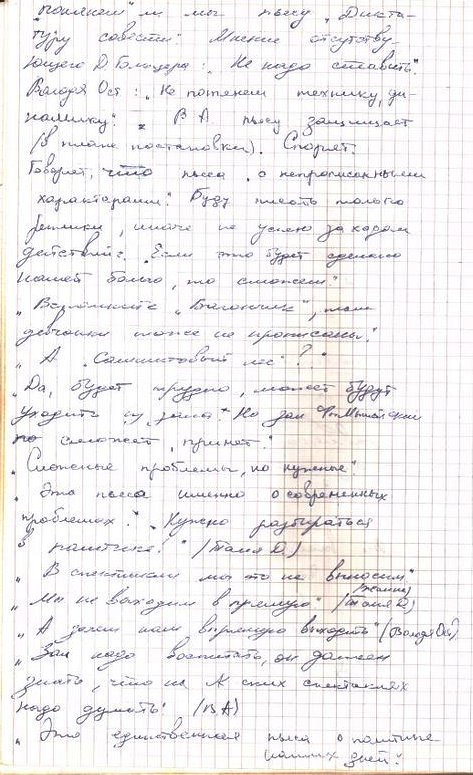 "потянем" ли мы пьесу "Дикта-
туру совести". Мнение отсутству-
ющего Д Блюдера: "Не надо ставить".
Володя Ост: "Не потянем технику, ди-
намику". В А пьесу защищает
(в плане постановки). Спорят.
Говорят, что пьеса "с непрописанными
характерами". Буду писать только
реплики, иначе не успею за ходом
действий: "Если это будет сделано
нашей болью, то сможем"
"Вспомните "Вагончик", там
девчонки тоже не прописаны."
"А "Самшитовый лес"?"
"Да, будет трудно, может будут
уходить из зала. Но зал
сможет, примет."
"Сложные проблемы, но нужные"
"Это пьеса именно о современных
проблемах". "Нужно разбираться
в политике!" (Таня Д.)
"В спектакли мы это не выносим"
"Мы не выходим в прямую" (Таня Д)
"А зачем нам впрямую выходить" (Володя Ост)
"Зал надо воспитать, он должен
знать, что на спектаклях
надо думать" (В А)
"Это единственная пьеса о политике
наших дней."